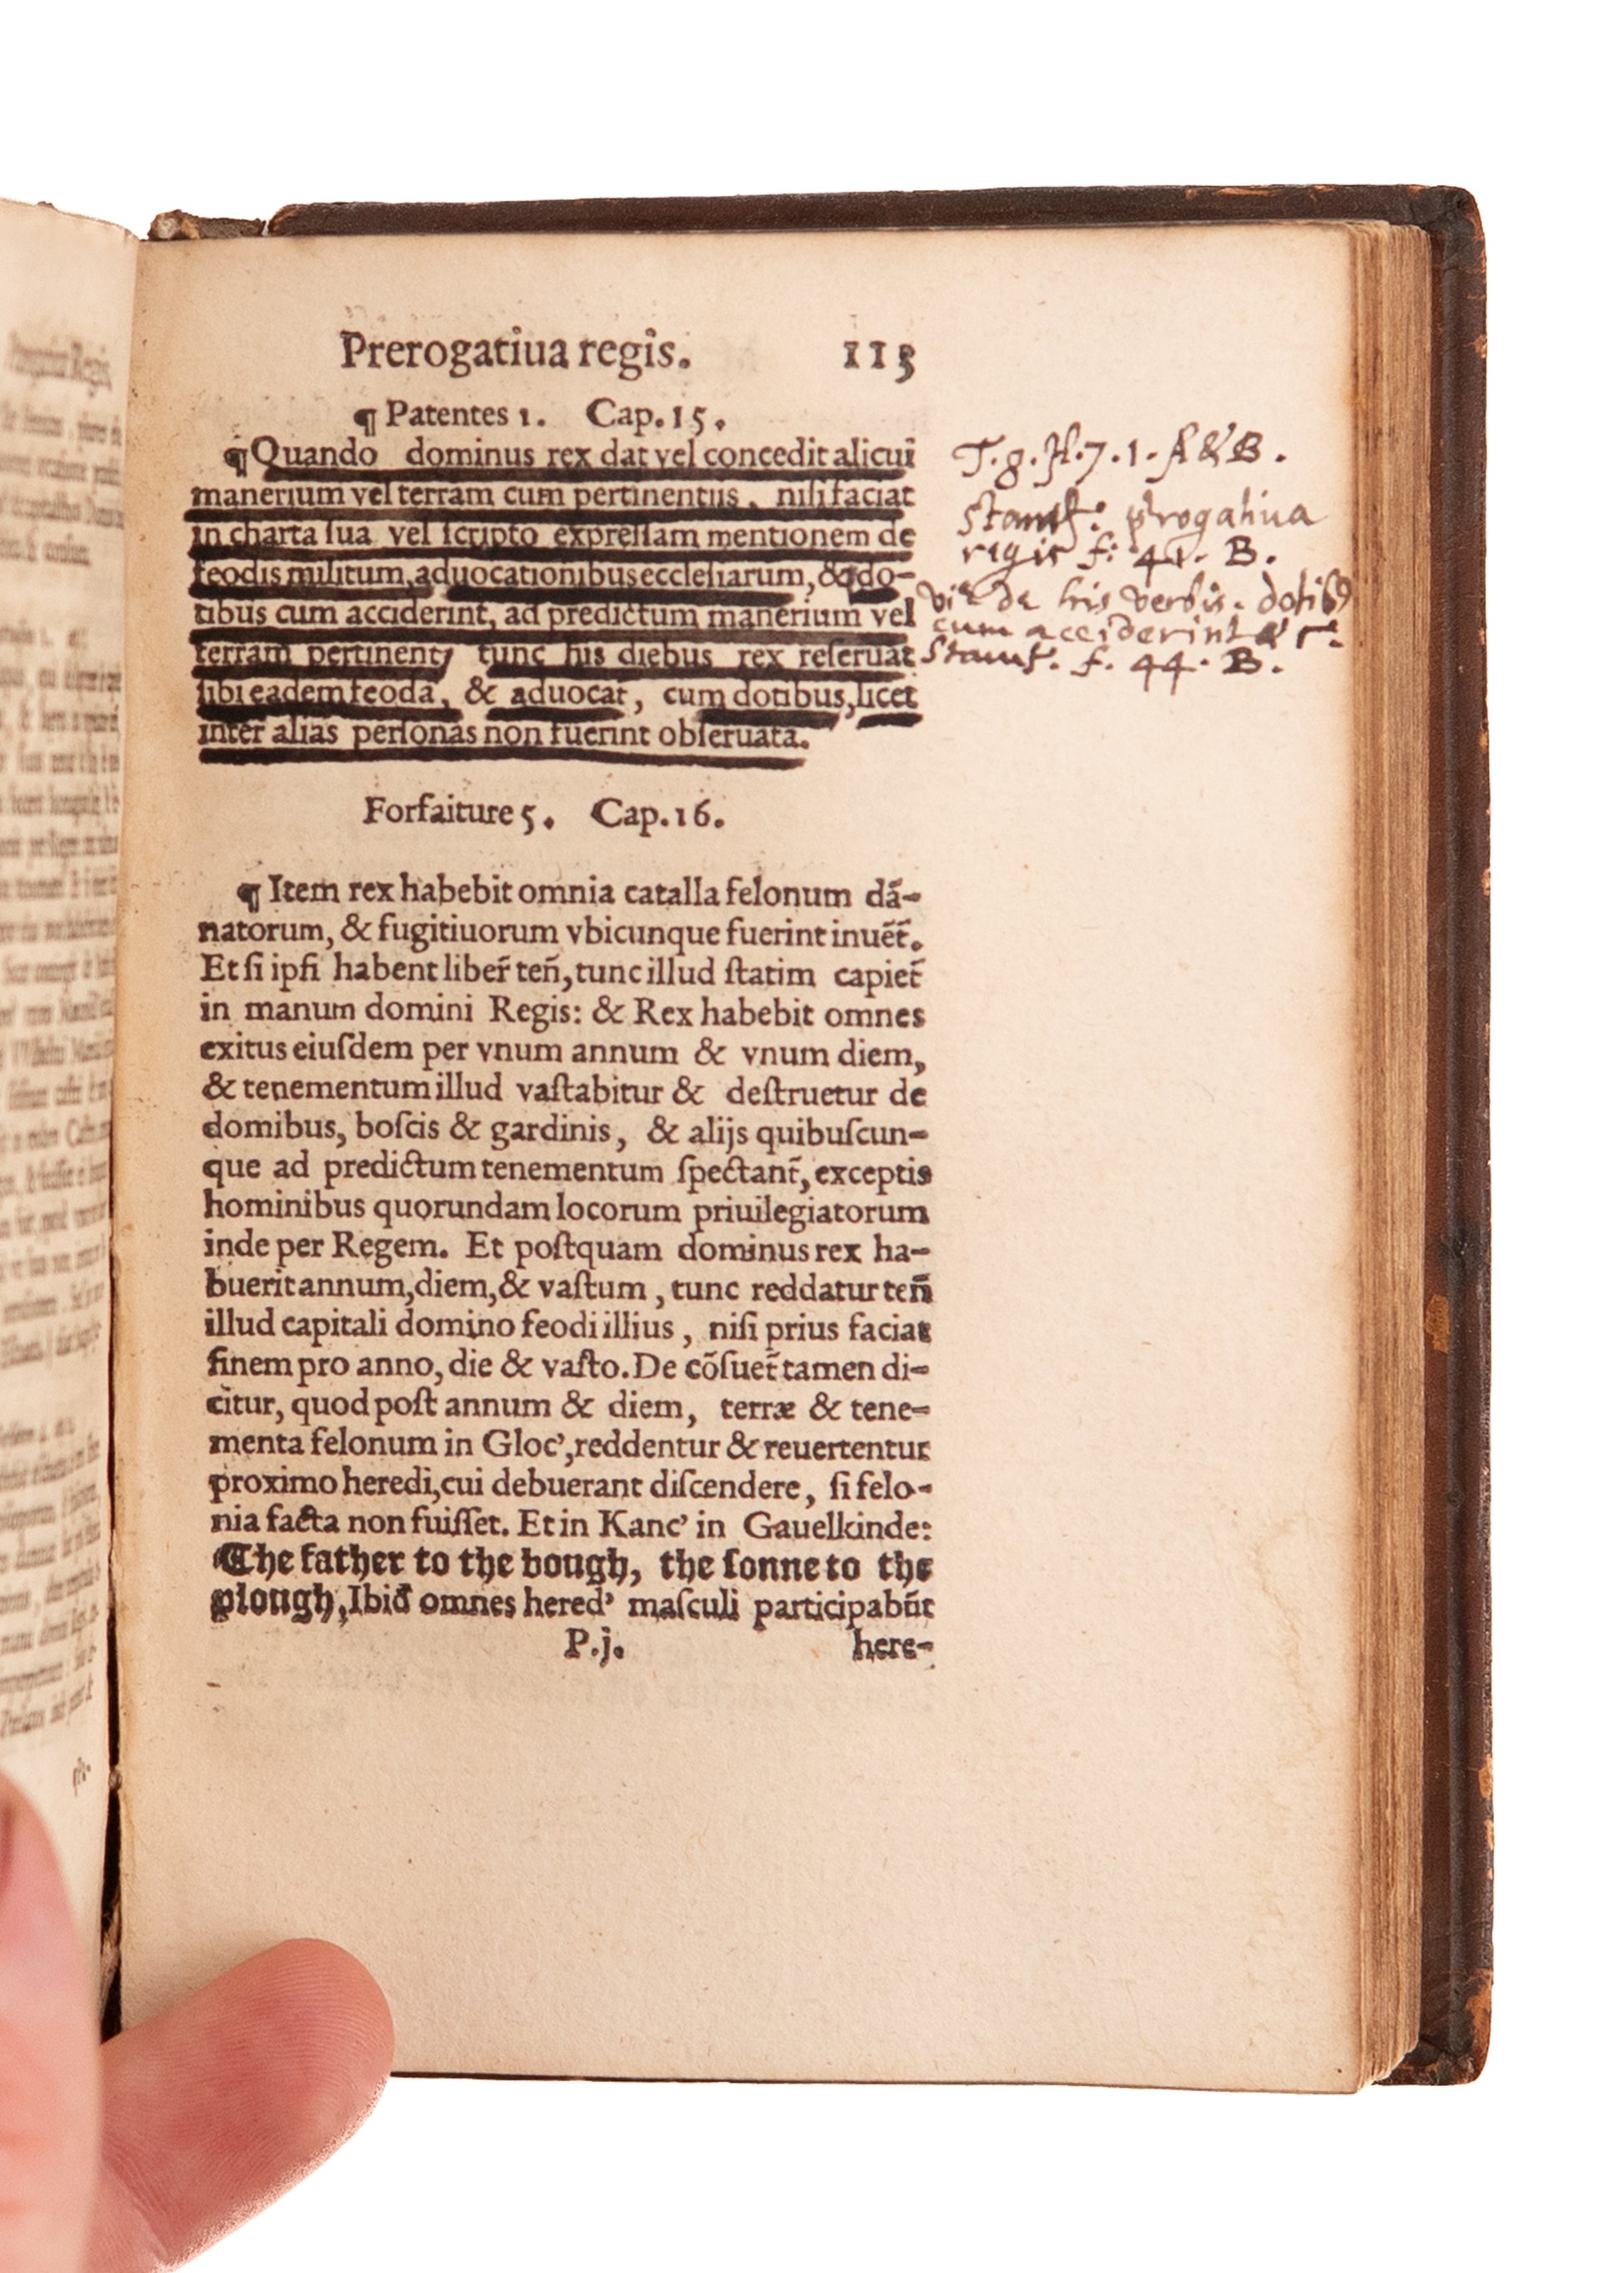 Prerogatiua regis. 113
¶ Patentes 1. Cap. 15.
¶ Quando dominus rex dat vel concedit alicui
manerium vel terram cum pertinentiis, niſi faciat
in charta ſua vel ſcripto expreſſam mentionem de
feodis militum, aduocationibus eccleſiarum, & do-
tibus cum acciderint, ad predictum manerium vel
terram pertinent, tunc his diebus rex reſeruat
ſibi eadem feoda, & aduocat̃, cum dotibus, licet
inter alias perſonas non fuerint obſeruata.
Forfaiture 5. Cap. 16.
¶ Item rex habebit omnia catalla felonum dã-
natorum, & fugitiuorum vbicunque fuerint inuẽt̃.
Et ſi ipſi habent liber̃ teñ, tunc illud ſtatim capiet̃
in manum domini Regis: & Rex habebit omnes
exitus eiuſdem per vnum annum & vnum diem,
& tenementum illud vaſtabitur & deſtruetur de
domibus, boſcis & gardinis, & alijs quibuſcun-
que ad predictum tenementum ſpectant̃, exceptis
hominibus quorundam locorum priuilegiatorum
inde per Regem. Et poſtquam dominus rex ha-
buerit annum, diem, & vaſtum, tunc reddatur teñ
illud capitali domino feodi illius, niſi prius faciat
finem pro anno, die & vaſto. De cõſuet̃ tamen di-
citur, quod poſt annum & diem, terræ & tene-
menta felonum in Gloc', reddentur & reuertentur
proximo heredi, cui debuerant diſcendere, ſi felo-
nia facta non fuiſſet. Et in Kanc' in Gauelkinde:
The father to the bough, the ſonne to the
plough, Ibid̃ omnes hered' maſculi participabũt
P.j. here-
7. 1. A & B.
Stamf: progatiua
regis f: 41. B.
de his verbis. dotib9
cum acciderint &c.
Stamf. f. 44. B.